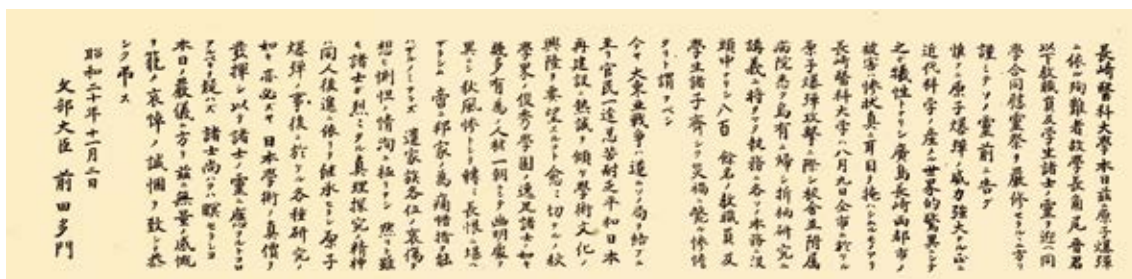 長崎醫科大學本日茲ニ原子爆彈
ニ依ル殉難者故學長角尾晋君
以下教職員及學生諸士ノ靈ヲ迎ヘ同
學合同慰靈祭ヲ嚴修セラルニ方リ
謹ミテソノ靈前ニ告グ
惟フニ原子爆彈ノ威力强大ナル正ニ
近代科學ノ産メル世界的驚異ニシテ
之ガ犧牲トナリシ廣島長崎両都市ノ
被害ノ惨狀真ニ耳目ヲ掩ハシムルモノアリ
長崎醫科大學ハ八月九日全市ニ於ケル
原子爆彈攻擊ニ際シ校舍並附属
病院悉ク烏有ニ歸シ折柄研究ニ
講義ニ將タマタ執務ニ各ソノ本務ニ没
頭中ナリシ八百餘名ノ教職員及
學生諸子齊シク災禍ニ斃ル惨愴
タリト謂フベシ
今ヤ大東亜戰爭ハ遂ニソノ局ヲ結ブニ
至リ官民一途忍苦耐乏平和日本
再建設ニ熱誠ヲ傾ケ學術文化ノ
興隆ヲ要望スルコト愈々切ナルノ秋
學界ノ俊秀學園ノ逸足諸士ノ如キ
幾多有為ノ人材一朝ニシテ幽明處ヲ
異ニシ秋風惨トシテ轉々長恨ニ堪ヘ
ザラシム啻ニ邦家ノ為痛惜措ク能
ハザルノミナラズ遺家族各位ノ哀傷ヲ
想ヒ惻怛ノ情洵ニ極リナシ然リト雖
モ諸士ガ烈々タル真理探究ノ精神
ハ同人後進ニ依リテ継承セラレ原子
爆彈ノ事後ニ於ケル各種研究ノ
如キ亦必ズヤ日本學術ノ真價ヲ
發揮シ以テ諸士ノ靈ニ應フルトコロ
アルベキヲ疑ハズ諸士尚クハ瞑セラレヨ
本日ノ嚴儀ニ方リ茲ニ無量ノ感慨
ヲ籠メ哀悼ノ誠悃ヲ致シ恭
シク弔ス
昭和二十年十一月二日
文部大臣 前田多門